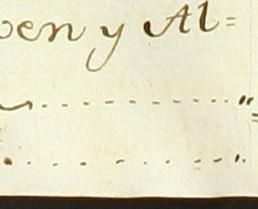 oen y Al=